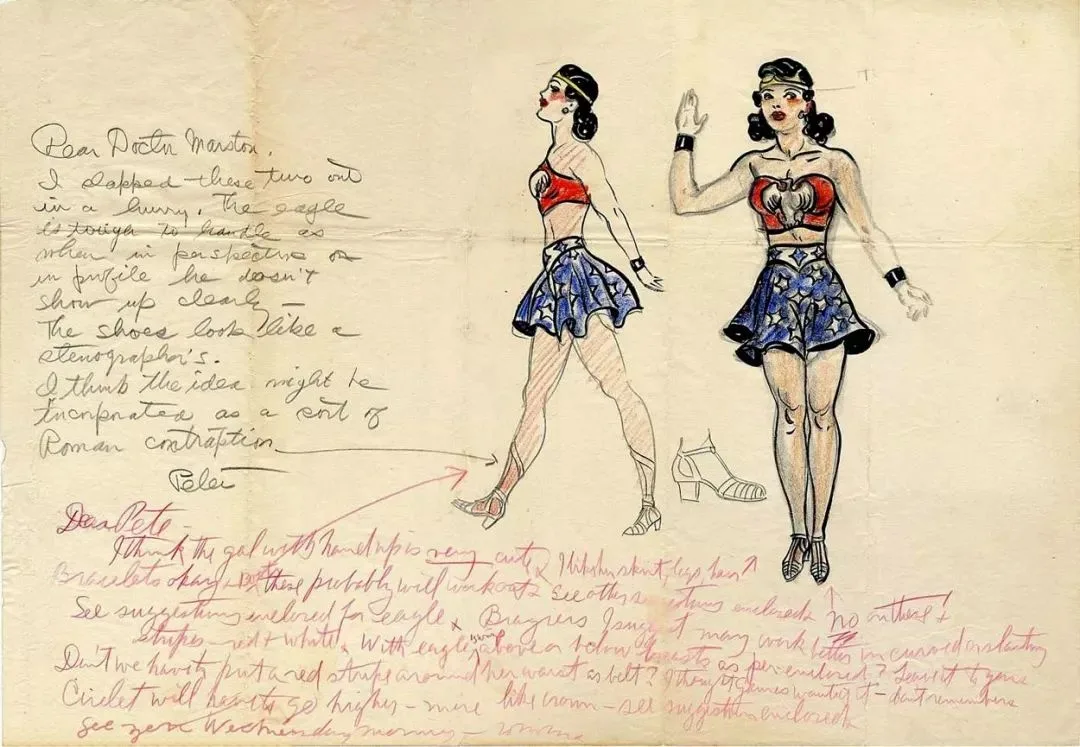 Dear Doctor Marston,
I slapped these two out
in a hurry. The eagle
is tough to handle as
when in perspective or
in profile he doesn't
show up clearly —
The shoes look like a
stenographer's.
I think the idea might be
incorporated as a sort of
Roman contraption.
Peter
Dear Pete —
I think the gal with hand up is very cute. I like her skirt, legs, hair
Bracelets okay + boots these probably will work out. See other suggestions enclosed. No on these +
See suggestions enclosed for eagle. Bras I suggest may work better in curved or slanting
stripes — red + white. With eagle's wings above or below breasts as per enclosed? Leave it to you.
Don't we have to put a red stripe around her waist as belt? I thought Gaines wanted it — don't remember.
Circlet will have to go higher — more like crown — see suggestions enclosed.
See you Wednesday morning —